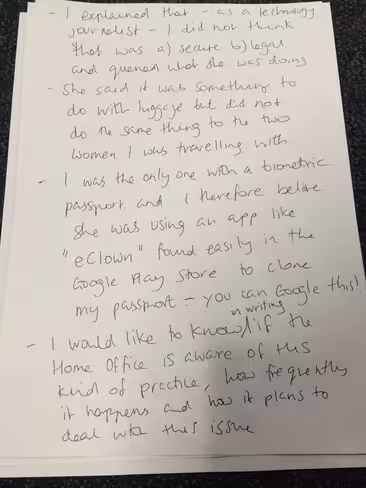 - I explained that - as a technology
journalist - I did not think
that was a) secure b) legal
and queried what she was doing
- She said it was something to
do with luggage but did not
do the same thing to the two
women I was travelling with
- I was the only one with a biometric
passport and I therefore belive
she was using an app like
"eClown" found easily in the
Google Play Store to clone
my passport - you can Google this!
in writing
- I would like to know/if the
Home Office is aware of this
kind of practice, how frequently
it happens and how it plans to
deal with this issue